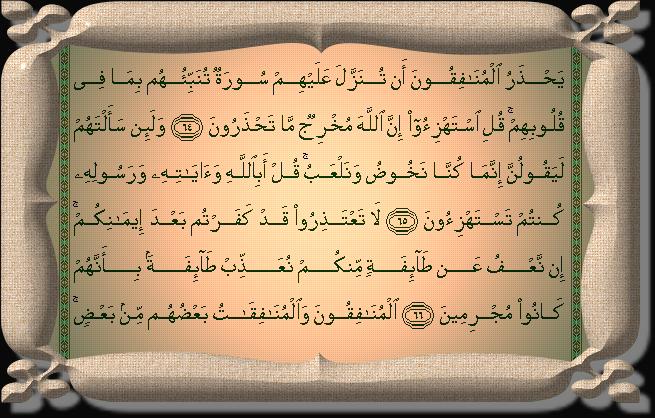 يَحْذَرُ ٱلْمُنَٰفِقُونَ أَن تُنَزَّلَ عَلَيْهِمْ سُورَةٌ تُنَبِّئُهُم بِمَا فِى
قُلُوبِهِمْ ۚ قُلِ ٱسْتَهْزِءُوٓا۟ إِنَّ ٱللَّهَ مُخْرِجٌ مَّا تَحْذَرُونَ ٦٤ وَلَئِن سَأَلْتَهُمْ
لَيَقُولُنَّ إِنَّمَا كُنَّا نَخُوضُ وَنَلْعَبُ ۚ قُلْ أَبِٱللَّهِ وَءَايَٰتِهِۦ وَرَسُولِهِۦ
كُنتُمْ تَسْتَهْزِءُونَ ٦٥ لَا تَعْتَذِرُوا۟ قَدْ كَفَرْتُم بَعْدَ إِيمَٰنِكُمْ ۚ
إِن نَّعْفُ عَن طَآئِفَةٍ مِّنكُمْ نُعَذِّبْ طَآئِفَةًۢ بِأَنَّهُمْ
كَانُوا۟ مُجْرِمِينَ ٦٦ ٱلْمُنَٰفِقُونَ وَٱلْمُنَٰفِقَٰتُ بَعْضُهُم مِّنۢ بَعْضٍ ۚ